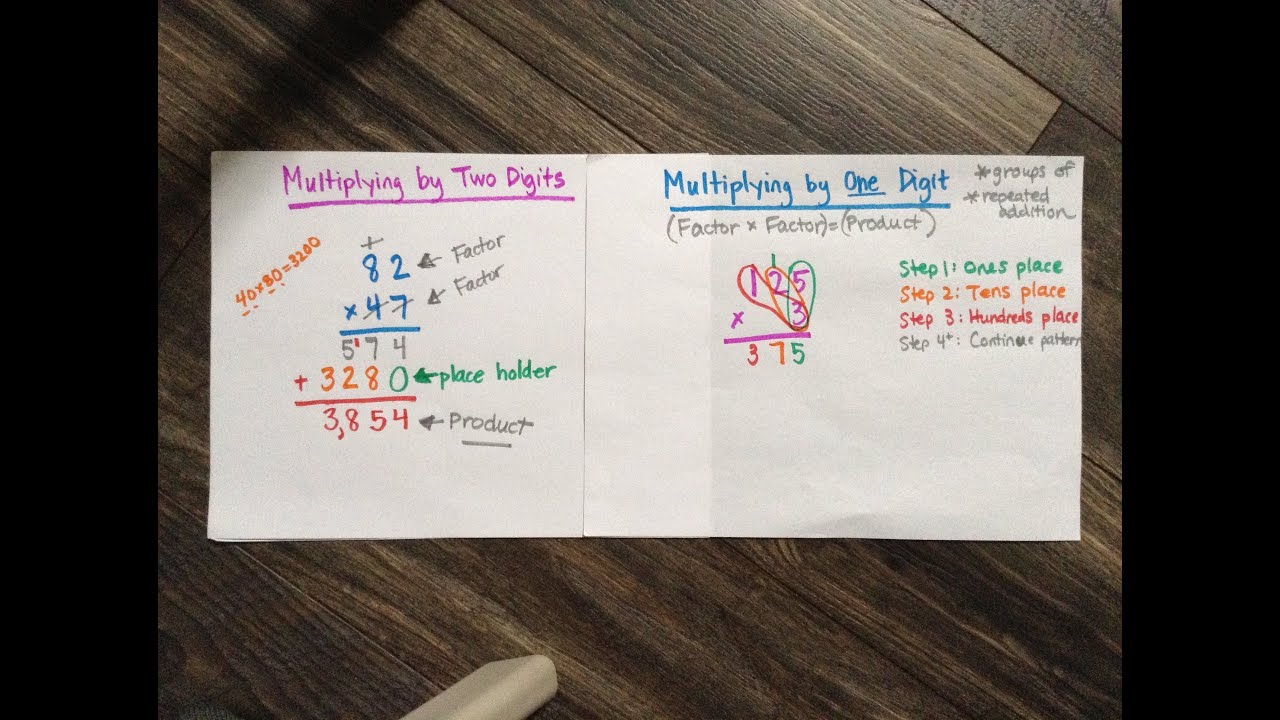 Multiplying by Two Digits
40×80=3200
1
82 Factor
×47 Factor
5¹74
+ 3280 place holder
3,854 Product
Multiplying by One Digit
* groups of
* repeated
addition
(Factor × Factor)=(Product)
1
125
× 3
375
Step 1: Ones place
Step 2: Tens place
Step 3: Hundreds place
Step 4+: Continue pattern